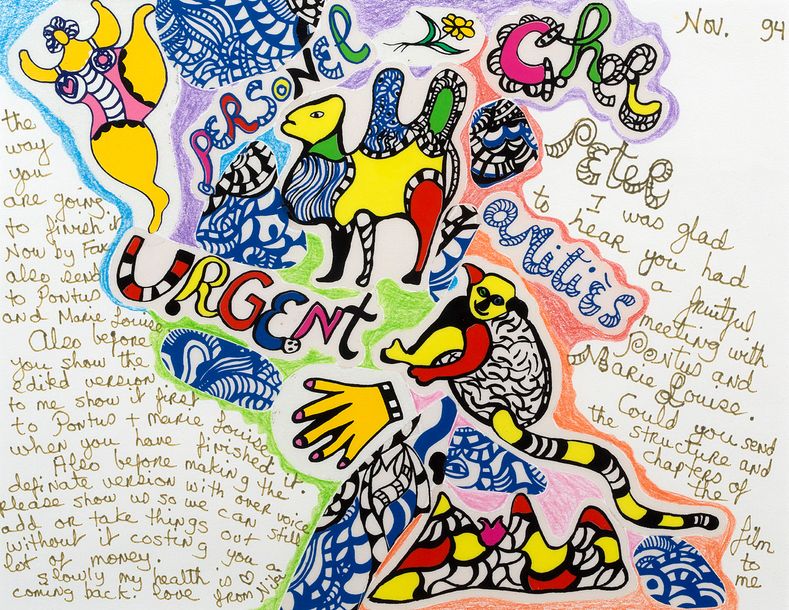 Nov. 94
PERSONEL
Cher
PETER
URGENT
AMitiès
I was glad
to hear you had
a fruitful
meeting with
Pontus and
Marie Louise.
Could you send
the structure and
chapters of
the film
to
me
the
way
you
are going
to finish it
Now by Fax
also sent
to Pontus
and Marie Louise
Also before
you show the
edited version
to me show it first
to Pontus + Marie Louise
when you have finished it.
Also before making the
definate version with over voice
please show us so we can still
add or take things out
without it costing you a
lot of money.
Slowly my health is
coming back. love from Niki